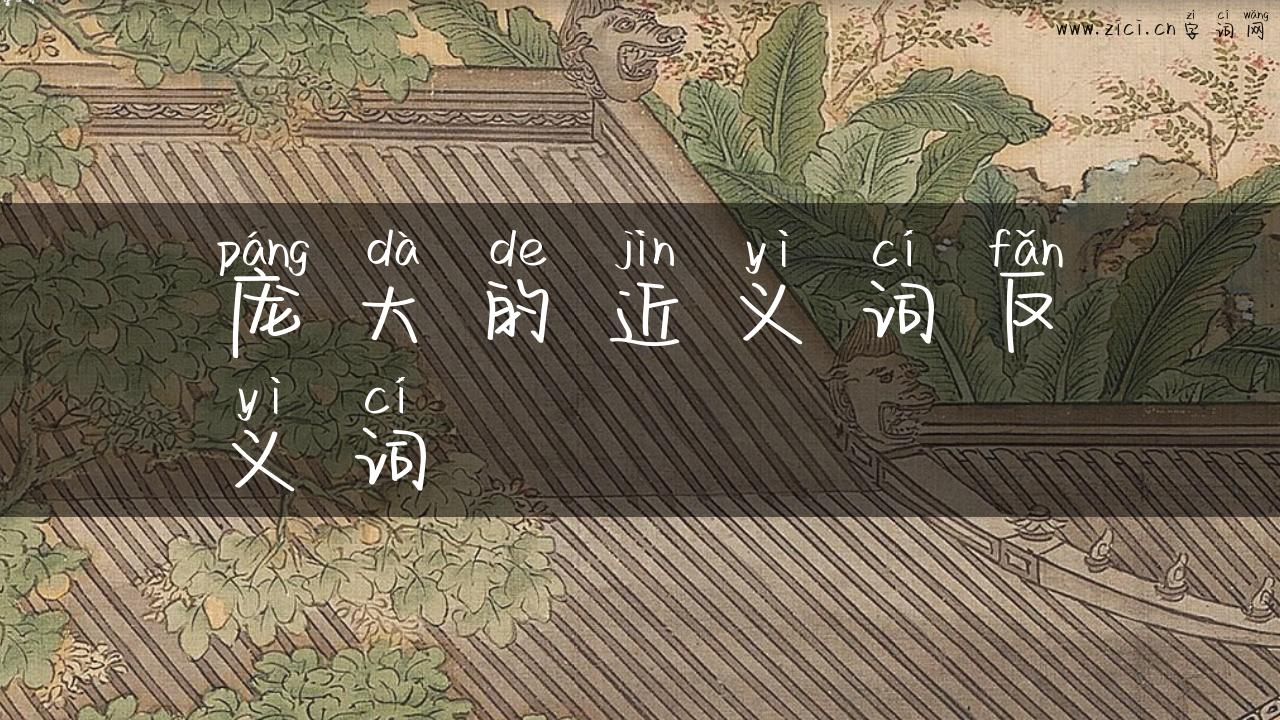 zì cí wǎng
www.zici.cn 字词网
páng dà de jìn yì cí fǎn
庞大的近义词反
yì cí
义词